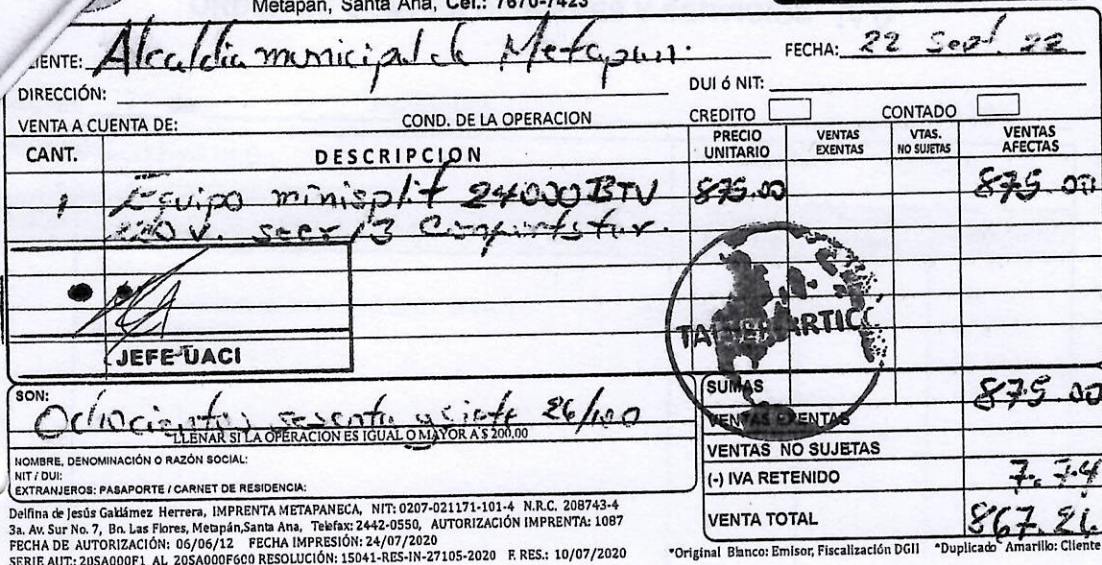 Metapán, Santa Ana, Cel.: 7670-7423
CLIENTE: Alcaldia municipal de Metapan. FECHA: 22 Sept. 22
DIRECCIÓN: DUI ó NIT:
VENTA A CUENTA DE: COND. DE LA OPERACION CREDITO CONTADO
CANT. DESCRIPCION PRECIO UNITARIO VENTAS EXENTAS VTAS. NO SUJETAS VENTAS AFECTAS
1 Equipo minisplit 24000 BTU 875.00 875.00
220 v. seer 13
TALLER ARTICO
JEFE UACI
SON: Ochocientos sesenta y siete 26/100
LLENAR SI LA OPERACION ES IGUAL O MAYOR A $ 200.00
SUMAS 875.00
VENTAS EXENTAS
NOMBRE, DENOMINACIÓN O RAZÓN SOCIAL:
VENTAS NO SUJETAS
NIT / DUI:
EXTRANJEROS: PASAPORTE / CARNET DE RESIDENCIA:
(-) IVA RETENIDO 7.74
VENTA TOTAL 867.26
Delfina de Jesús Galdámez Herrera, IMPRENTA METAPANECA, NIT: 0207-021171-101-4 N.R.C. 208743-4
3a. Av. Sur No. 7, Bo. Las Flores, Metapán,Santa Ana, Telefax: 2442-0550, AUTORIZACIÓN IMPRENTA: 1087
FECHA DE AUTORIZACIÓN: 06/06/12 FECHA IMPRESIÓN: 24/07/2020
SERIE AUT.: 20SA000F1 AL 20SA000F600 RESOLUCIÓN: 15041-RES-IN-27105-2020 F. RES.: 10/07/2020
*Original Blanco: Emisor, Fiscalización DGII *Duplicado Amarillo: Cliente